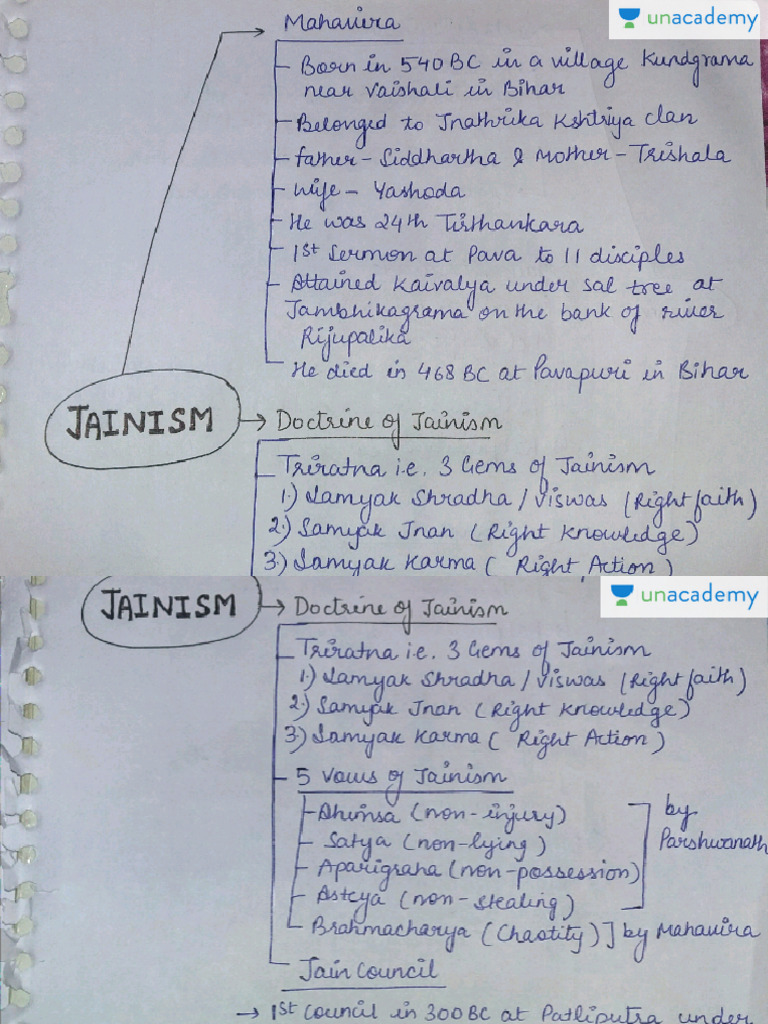 unacademy
Mahavira
- Born in 540 BC in a village Kundgrama
near Vaishali in Bihar
- Belonged to Jnathrika Kshtriya clan
- father - Siddhartha & Mother - Trishala
- wife - Yashoda
- He was 24th Tirthankara
- 1st Sermon at Pava to 11 disciples
- Attained Kaivalya under sal tree at
Jambhikagrama on the bank of river
Rijupalika
- He died in 468 BC at Pavapuri in Bihar
JAINISM → Doctrine of Jainism
- Triratna i.e. 3 Gems of Jainism
1.) Samyak Shradha / Viswas (Right faith)
2.) Samyak Jnan (Right Knowledge)
3.) Samyak Karma ( Right Action )
unacademy
JAINISM → Doctrine of Jainism
- Triratna i.e. 3 Gems of Jainism
1.) Samyak Shradha / Viswas (Right faith)
2.) Samyak Jnan (Right Knowledge)
3.) Samyak Karma ( Right Action )
- 5 vows of Jainism
- Ahimsa (non-injury)
- Satya (non-lying)
- Aparigraha (non-possession)
- Asteya (non-stealing)
by
Parshwanath
- Brahmacharya (Chastity)] by Mahavira
- Jain Council
→ 1st Council in 300 BC at Patliputra under